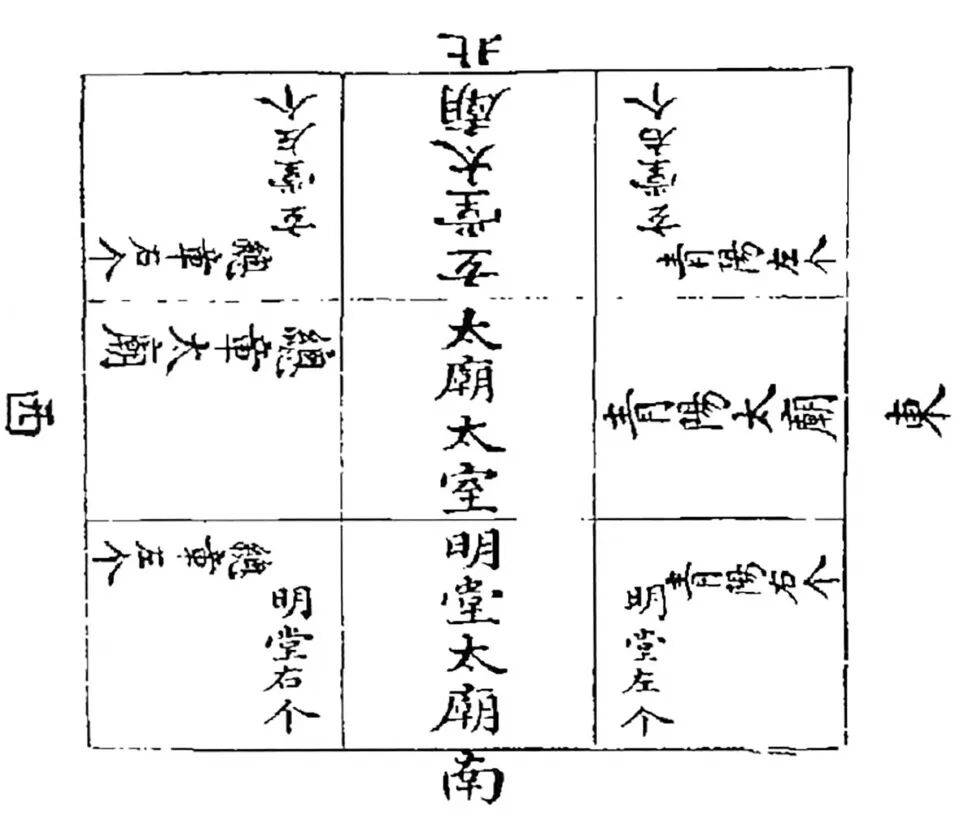 北
玄堂左个
總章右个
玄堂大廟
玄堂右个
青陽左个
西
總章大廟
太廟太室
青陽太廟
東
總章左个
明堂右个
明堂太廟
明堂左个
青陽右个
南